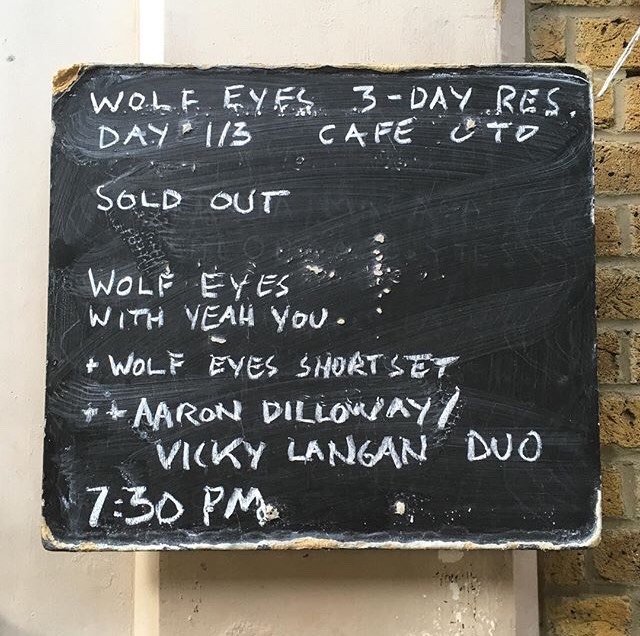 WOLF EYES 3-DAY RES.
DAY 1/3 CAFE OTO
SOLD OUT
WOLF EYES
WITH YEAH YOU
+ WOLF EYES SHORT SET
++ AARON DILLOWAY/
VICKY LANGAN DUO
7:30 PM